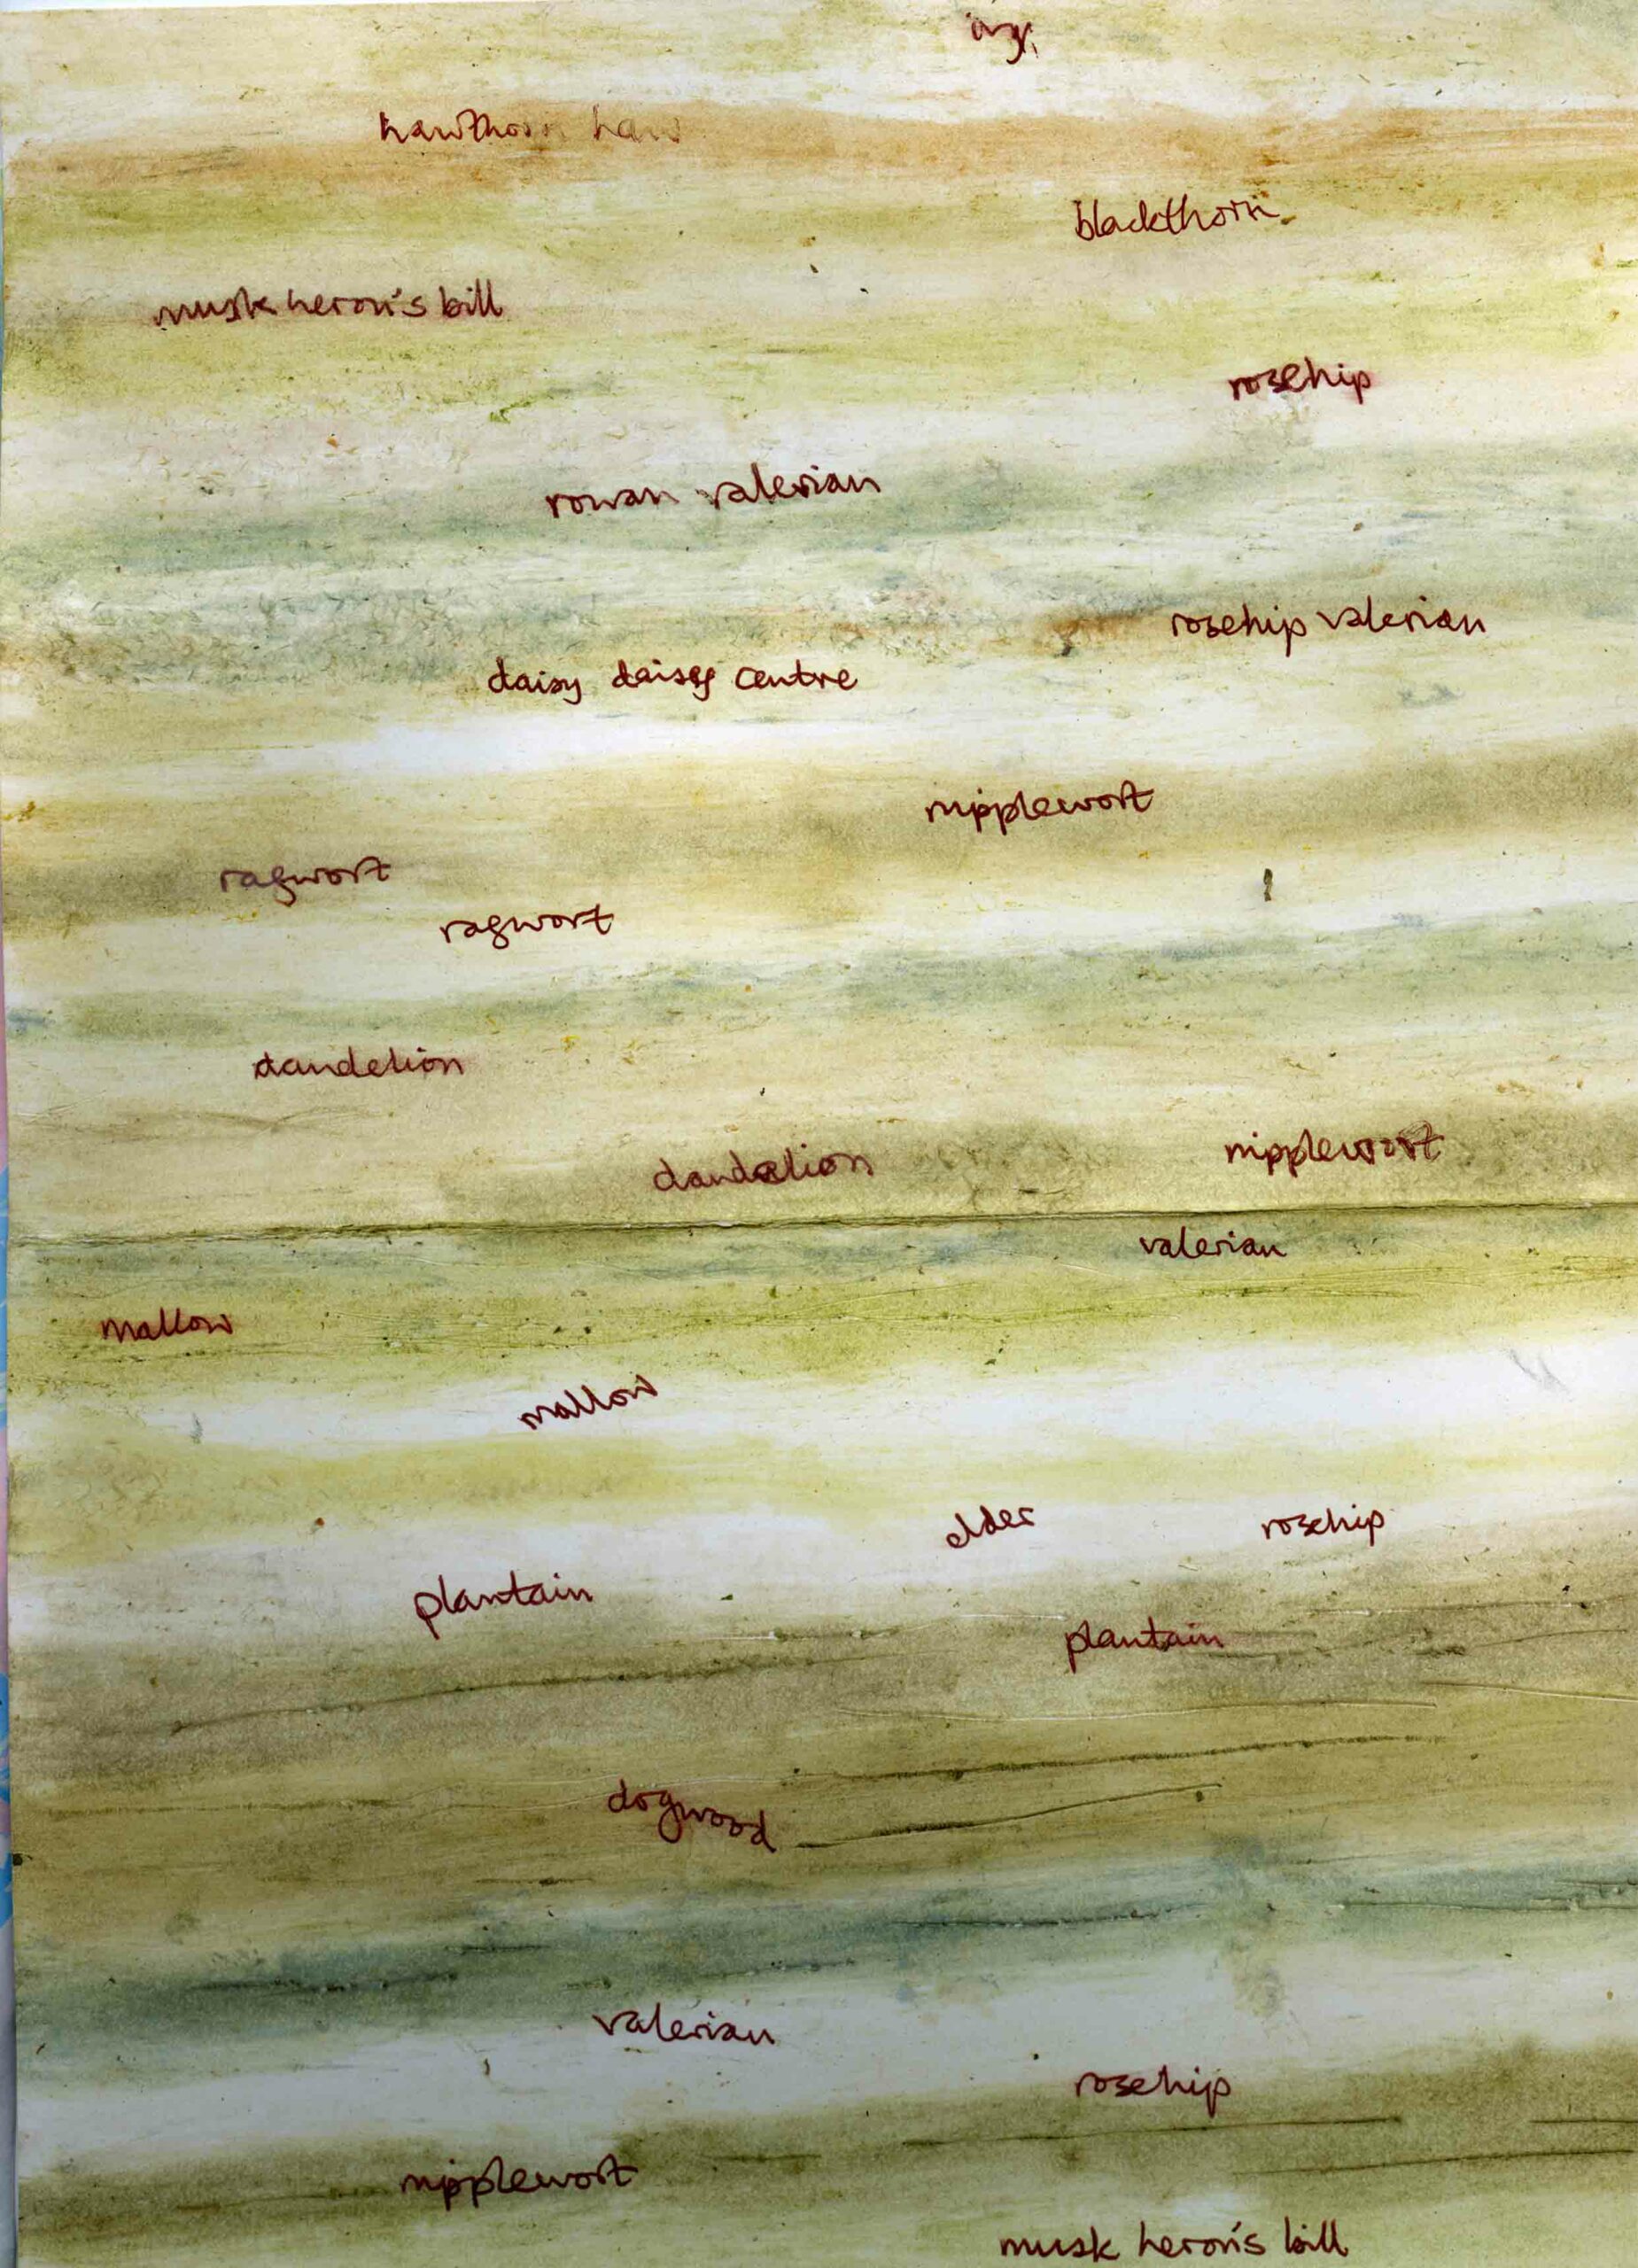 hawthorn haw
blackthorn
musk heron's bill
rosehip
rowan valerian
rosehip valerian
daisy daisy centre
nipplewort
ragwort
ragwort
dandelion
dandelion
nipplewort
valerian
mallow
mallow
elder
rosehip
plantain
plantain
dogwood
valerian
rosehip
nipplewort
musk heron's bill